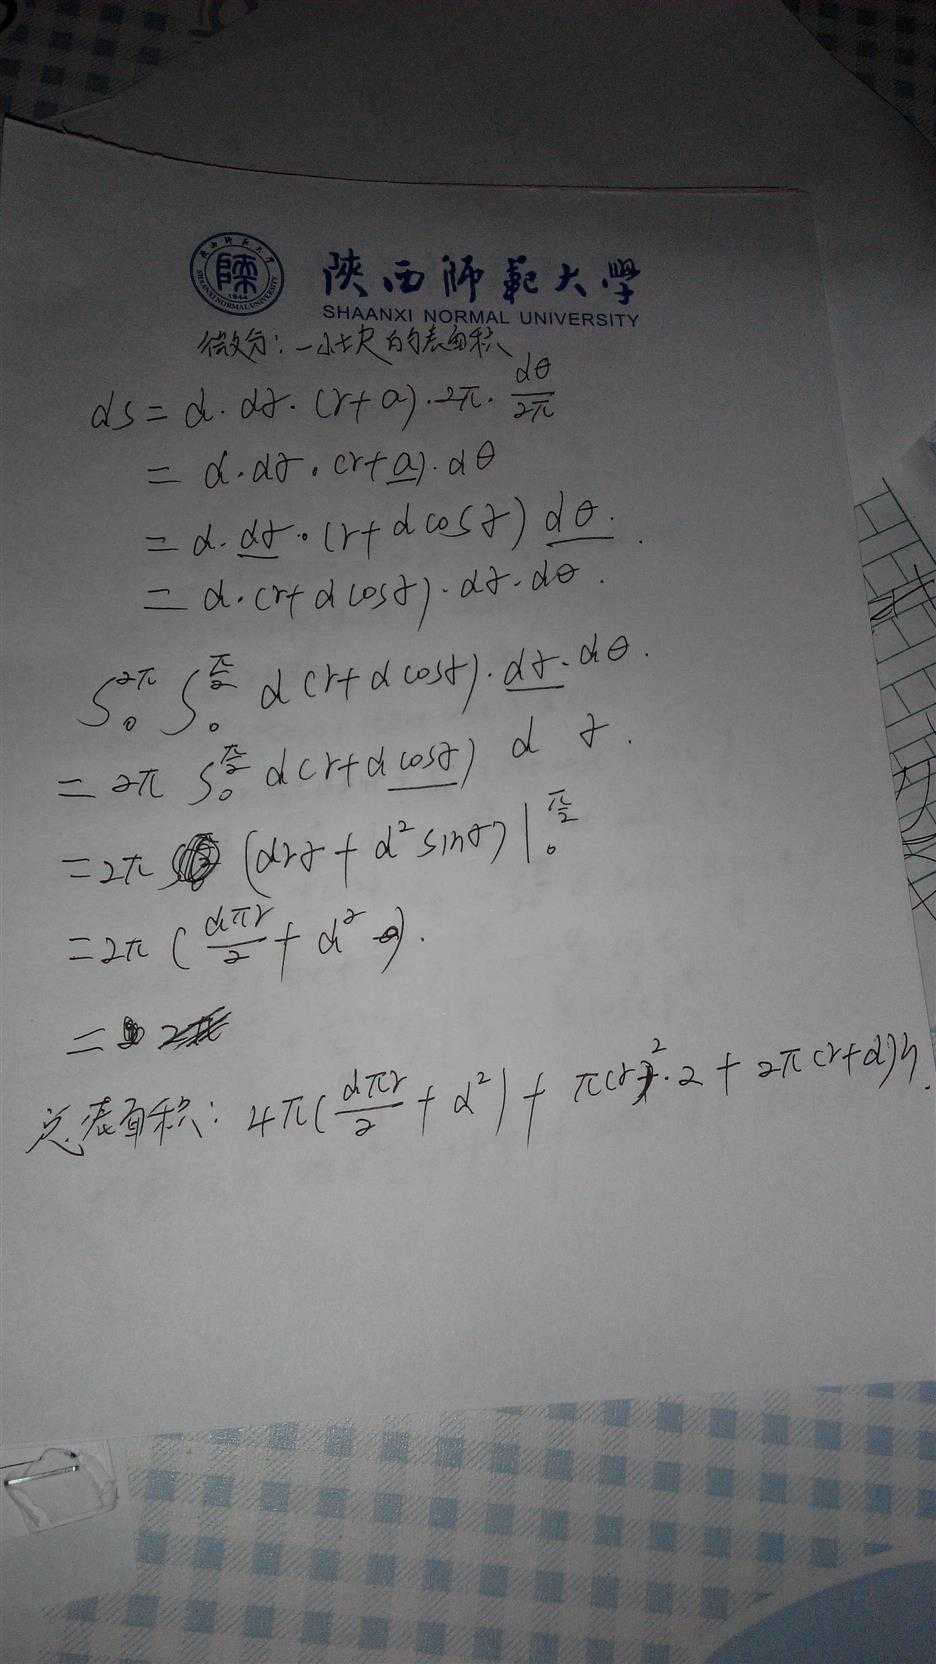 陕西师范大学
SHAANXI NORMAL UNIVERSITY
微分：一小块的表面积
ds = d · dγ · (r+a) · 2π · dθ/2π
= d · dγ · (r+a) · dθ
= d · dγ · (r+dcosγ) dθ .
= d · (r+dcosγ) · dγ · dθ .
∫₀^2π ∫₀^π/2 d(r+dcosγ) · dγ · dθ .
= 2π ∫₀^π/2 d(r+dcosγ) dγ .
= 2π (drγ + d²sinγ)|₀^π/2
= 2π (dπr/2 + d²) .
=
总表面积： 4π(dπr/2 + d²) + π(r)²·2 + 2π(r+d)h .